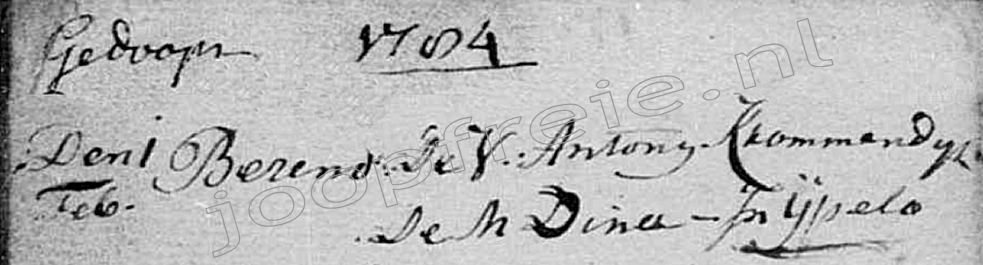 Gedoopt 1784
Den 1 Berend. De V. Antony Krommendyk
Feb. De M Dina - In Ypelo
joopfreie.nl